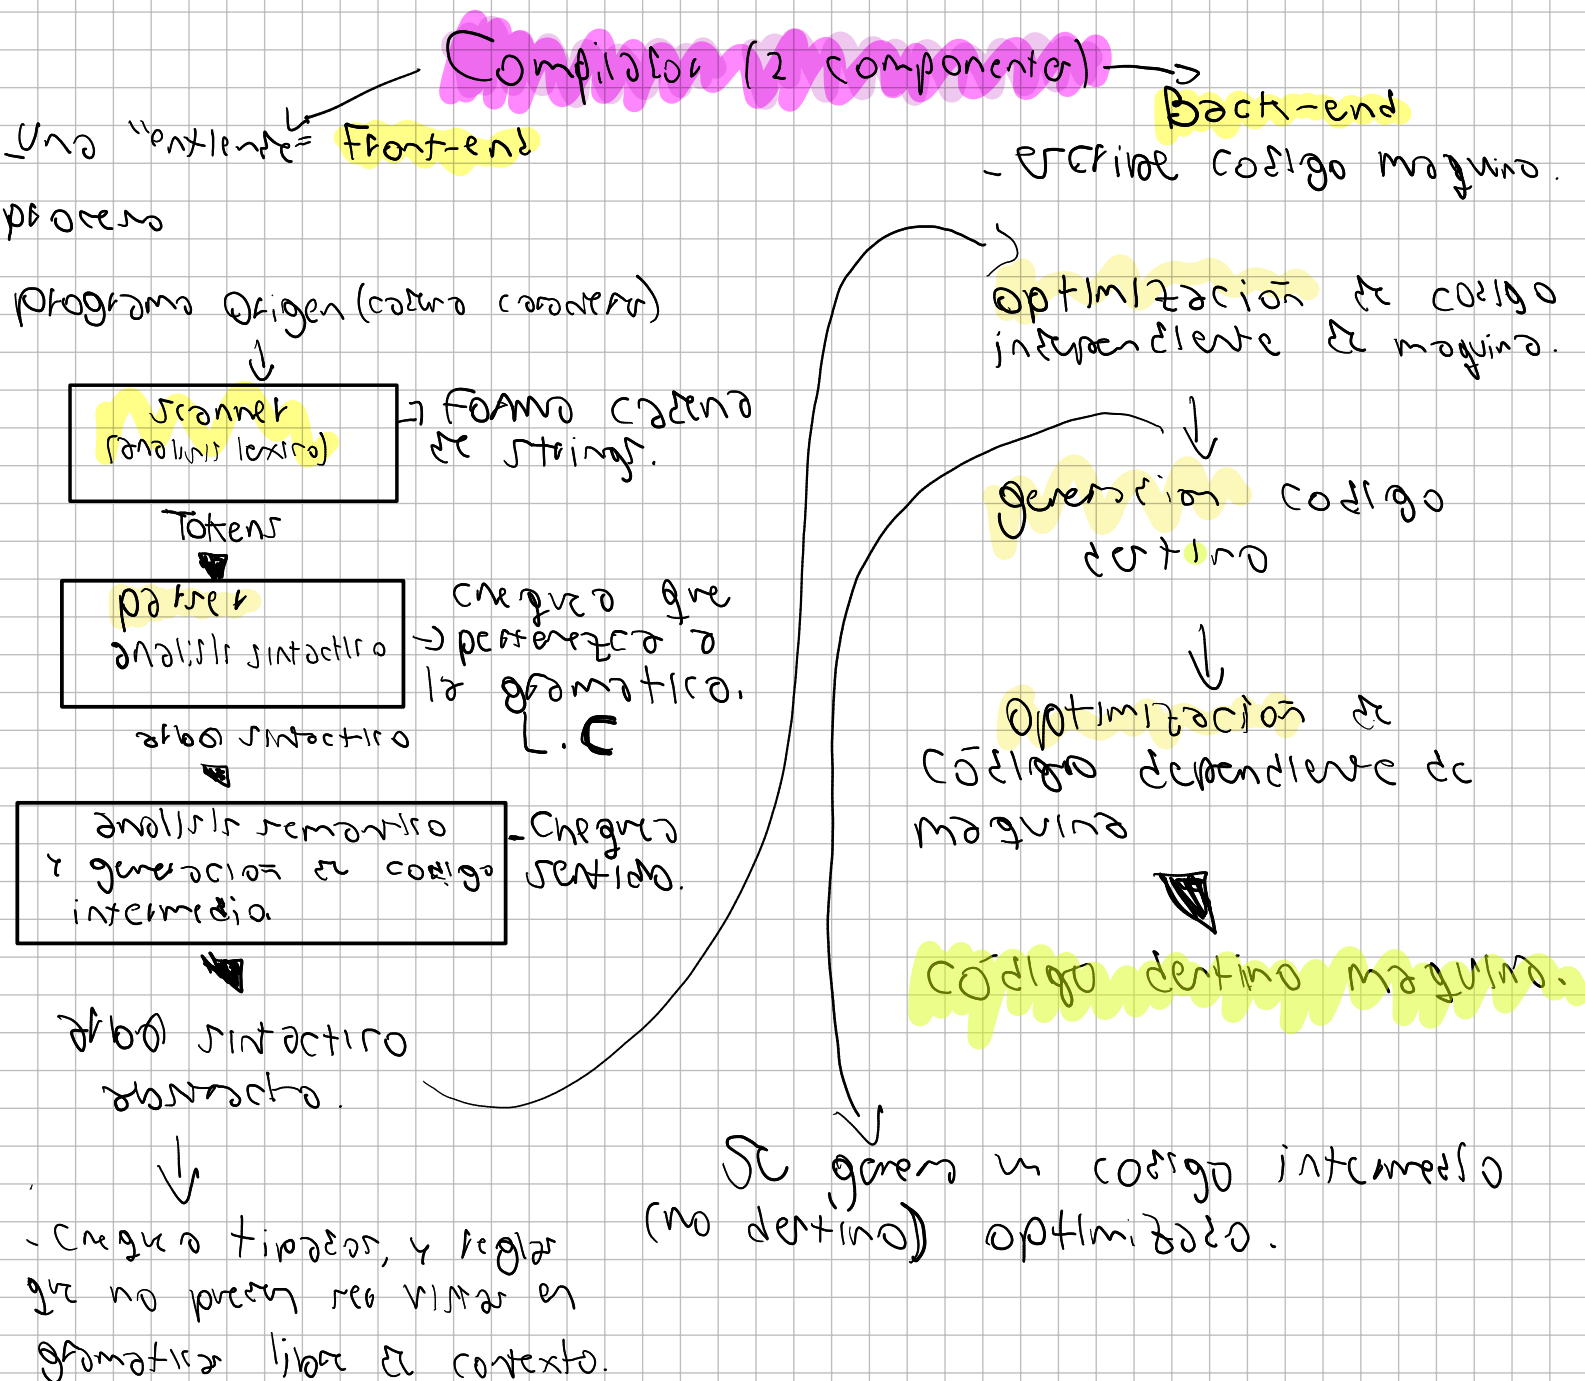 Compilador (2 componentes)
Una "entiende" Front-end
proceso
programa origen (cadena caracteres)
scanner
(analisis lexico)
→ Forma cadena
de strings.
Tokens
parser
analisis sintactico
→ chequea que
pertenezca a
la gramatica.
L.C
arbol sintactico
analisis semantico
y generacion de codigo
intermedio.
- Chequea
sentido.
arbol sintactico
abstracto.
- Chequea tipados, y reglas
que no pueden ser vistas en
gramaticas libre de contexto.
Back-end
- escribe codigo maquina.
optimización de codigo
independiente de maquina.
generacion codigo
destino
Optimización de
código dependiente de
maquina
código destino maquina.
Se genera un codigo intermedio
(no destino) optimizado.